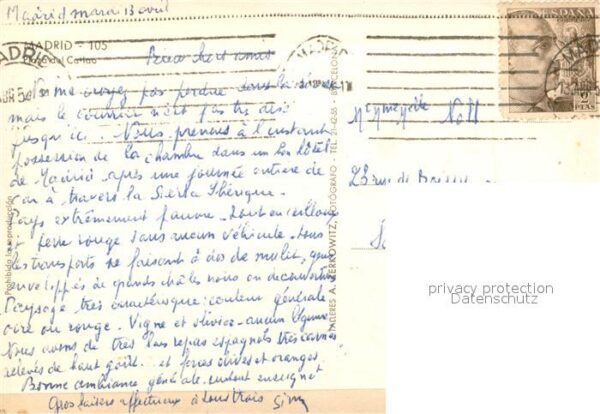 Madrid mardi 13 avril
MADRID - 105
Plaza del Callao
Bien chers amis
Ne me croyez pas perdue dans la
mais le courrier n'est pas très
jusqu'ici. Nous prenons à l'instant
possession de la chambre dans un bon hôtel
de Madrid après une journée entière de
car à travers la Sierra Ibérique.
Pays extrêmement pauvre. Tout en cailloux
et terre rouge sans aucun véhicule. Tous
les transports se faisant à dos de mulet, gens
enveloppés de grands châles noirs ou de couvertures
Paysage très caractéristique: couleur générale
ocre ou rouge. Vigne et olivier. aucun légume
Nous avons de très bons repas espagnols très
relevés de haut goût. et force olives et oranges.
Bonne ambiance générale.
Gros baisers affectueux à tous trois
Prohibida la reproducción
TALLERES A. ZERKOWITZ, FOTÓGRAFO - TEL. - BARCELONA
MADRID
MADRID
ESPAÑA
2
PTAS
Noll
23 rue de
privacy protection
Datenschutz